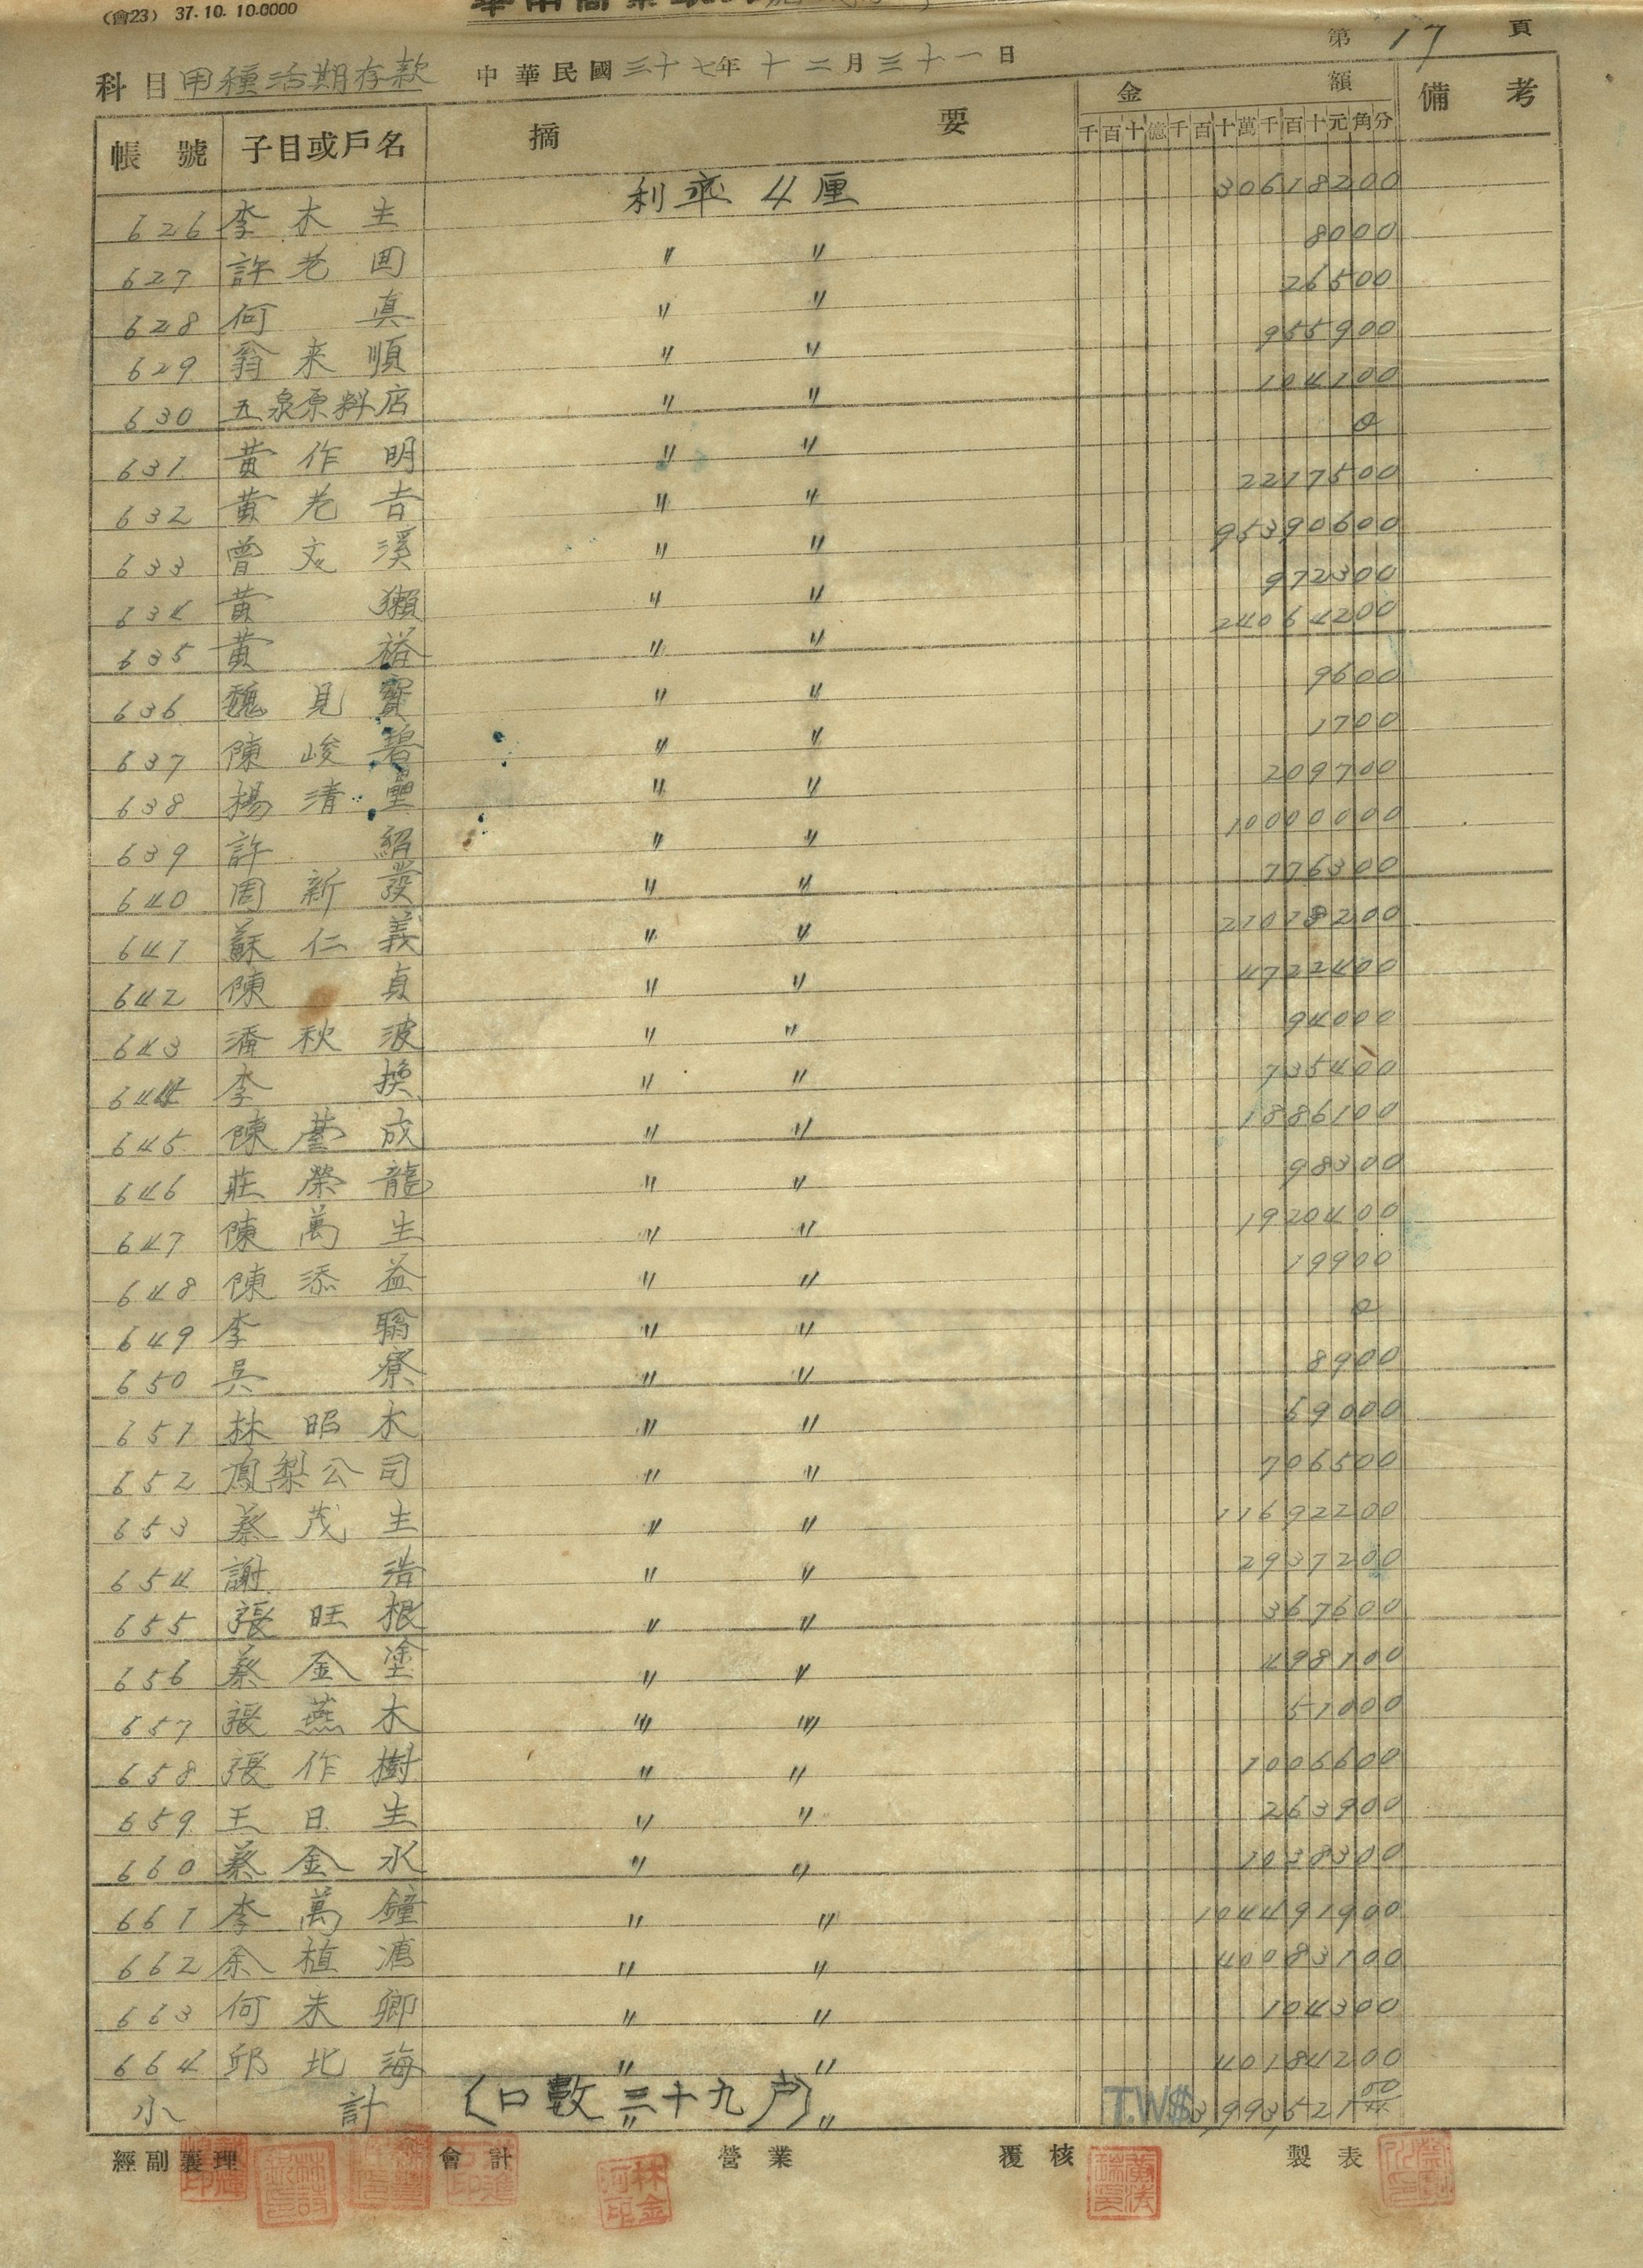 (會23) 37.10.10.0000
第 17 頁
科目 甲種活期存款 中華民國三十七年十二月三十一日
帳號 子目或戶名 摘要 金額 備考
千百十億千百十萬千百十元角分
626 李木生 利率4厘 30618200
627 許老 〃 〃 8000
628 何真 〃 〃 26500
629 翁来順 〃 〃 955900
630 五泉原料店 〃 〃 104100
631 黃作明 〃 〃 0
632 黃老吉 〃 〃 2217500
633 曾文溪 〃 〃 95390600
634 黃獺 〃 〃 972300
635 黃裕 〃 〃 24064200
636 魏見寶 〃 〃 9600
637 陳峻碧 〃 〃 1700
638 楊清壘 〃 〃 209700
639 許紹 〃 〃 10000000
640 周新發 〃 〃 776300
641 蘇仁義 〃 〃 21018200
642 陳貞 〃 〃 4722400
643 潘秋波 〃 〃 94000
644 李換 〃 〃 735400
645 陳薹成 〃 〃 1886100
646 莊榮龍 〃 〃 98300
647 陳萬生 〃 〃 1920400
648 陳添益 〃 〃 19900
649 李 〃 〃 0
650 吳寮 〃 〃 8900
651 林昭木 〃 〃 69000
652 鳳梨公司 〃 〃 706500
653 蔡茂生 〃 〃 11692200
654 謝浩 〃 〃 2937200
655 張旺根 〃 〃 367600
656 蔡金塗 〃 〃 498100
657 張燕木 〃 〃 51000
658 張作樹 〃 〃 1006600
659 王日生 〃 〃 263900
660 蔡金水 〃 〃 1038300
661 李萬鐘 〃 〃 104491900
662 余植 〃 〃 40083100
663 何朱卿 〃 〃 104300
664 邱北海 〃 〃 40184200
小計 (口數三十九戶) 〃 〃 T.W$3,993,521.00
經副襄理 會計 營業 覆核 製表